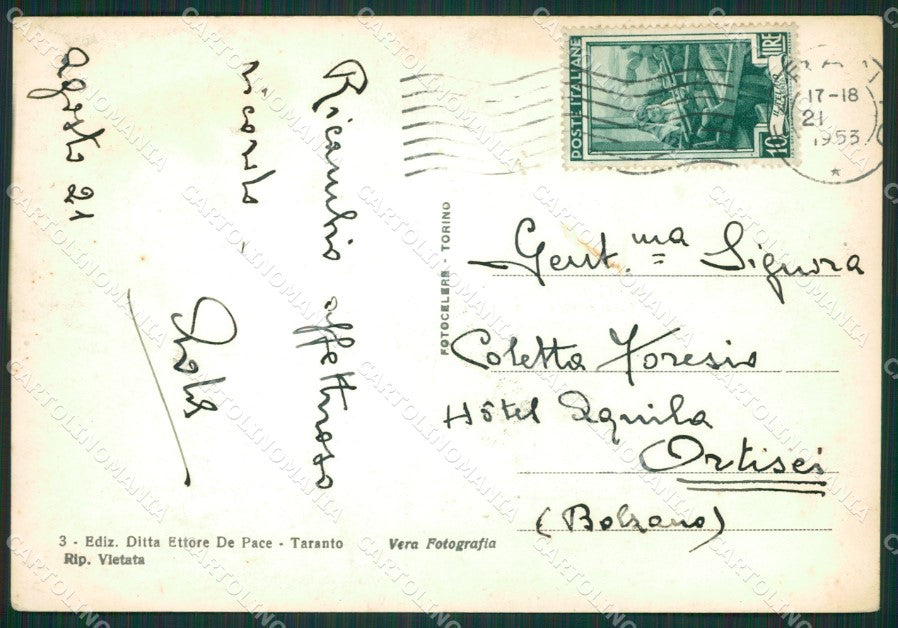 Ricambio affettuoso
ricordo -
agosto 21
POSTE ITALIANE
LIRE
10
17-18
21
1953
FOTOCELERE - TORINO
Gent.ma Signora
Coletta
Hôtel Aquila
Ortisei
(Bolzano)
3 - Ediz. Ditta Ettore De Pace - Taranto
Vera Fotografia
Rip. Vietata
CARTOLINOMANIA